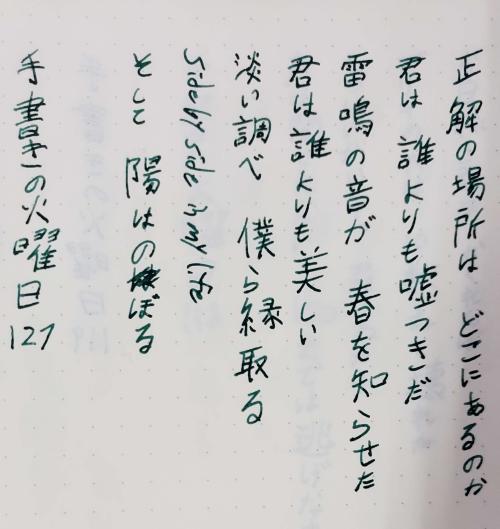 正解の場所は どこにあるのか
君は 誰よりも嘘つきだ
雷鳴の音が 春を知らせた
君は誰よりも美しい
淡い調べ 僕ら縁取る
Side by side in my life
そして 陽はのぼる
手書きの火曜日127